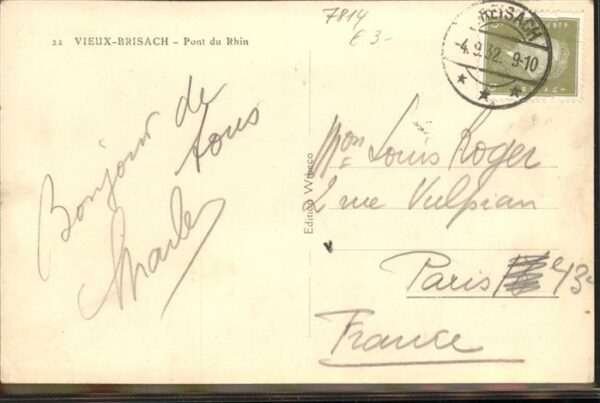 22 VIEUX-BRISACH - Pont du Rhin
7814
€ 3-
BREISACH
-4.9.32. 9-10
Bonjour de
tous
Charles
Edition
Mon Louis Roger
2 rue Vulpian
Paris 13e
France